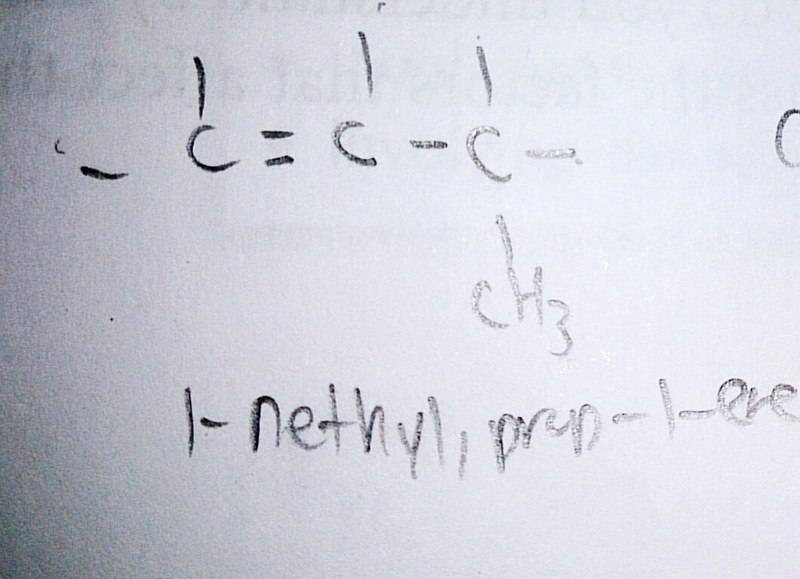 - C = C - C -
CH3
1-methyl, prop-1-ene